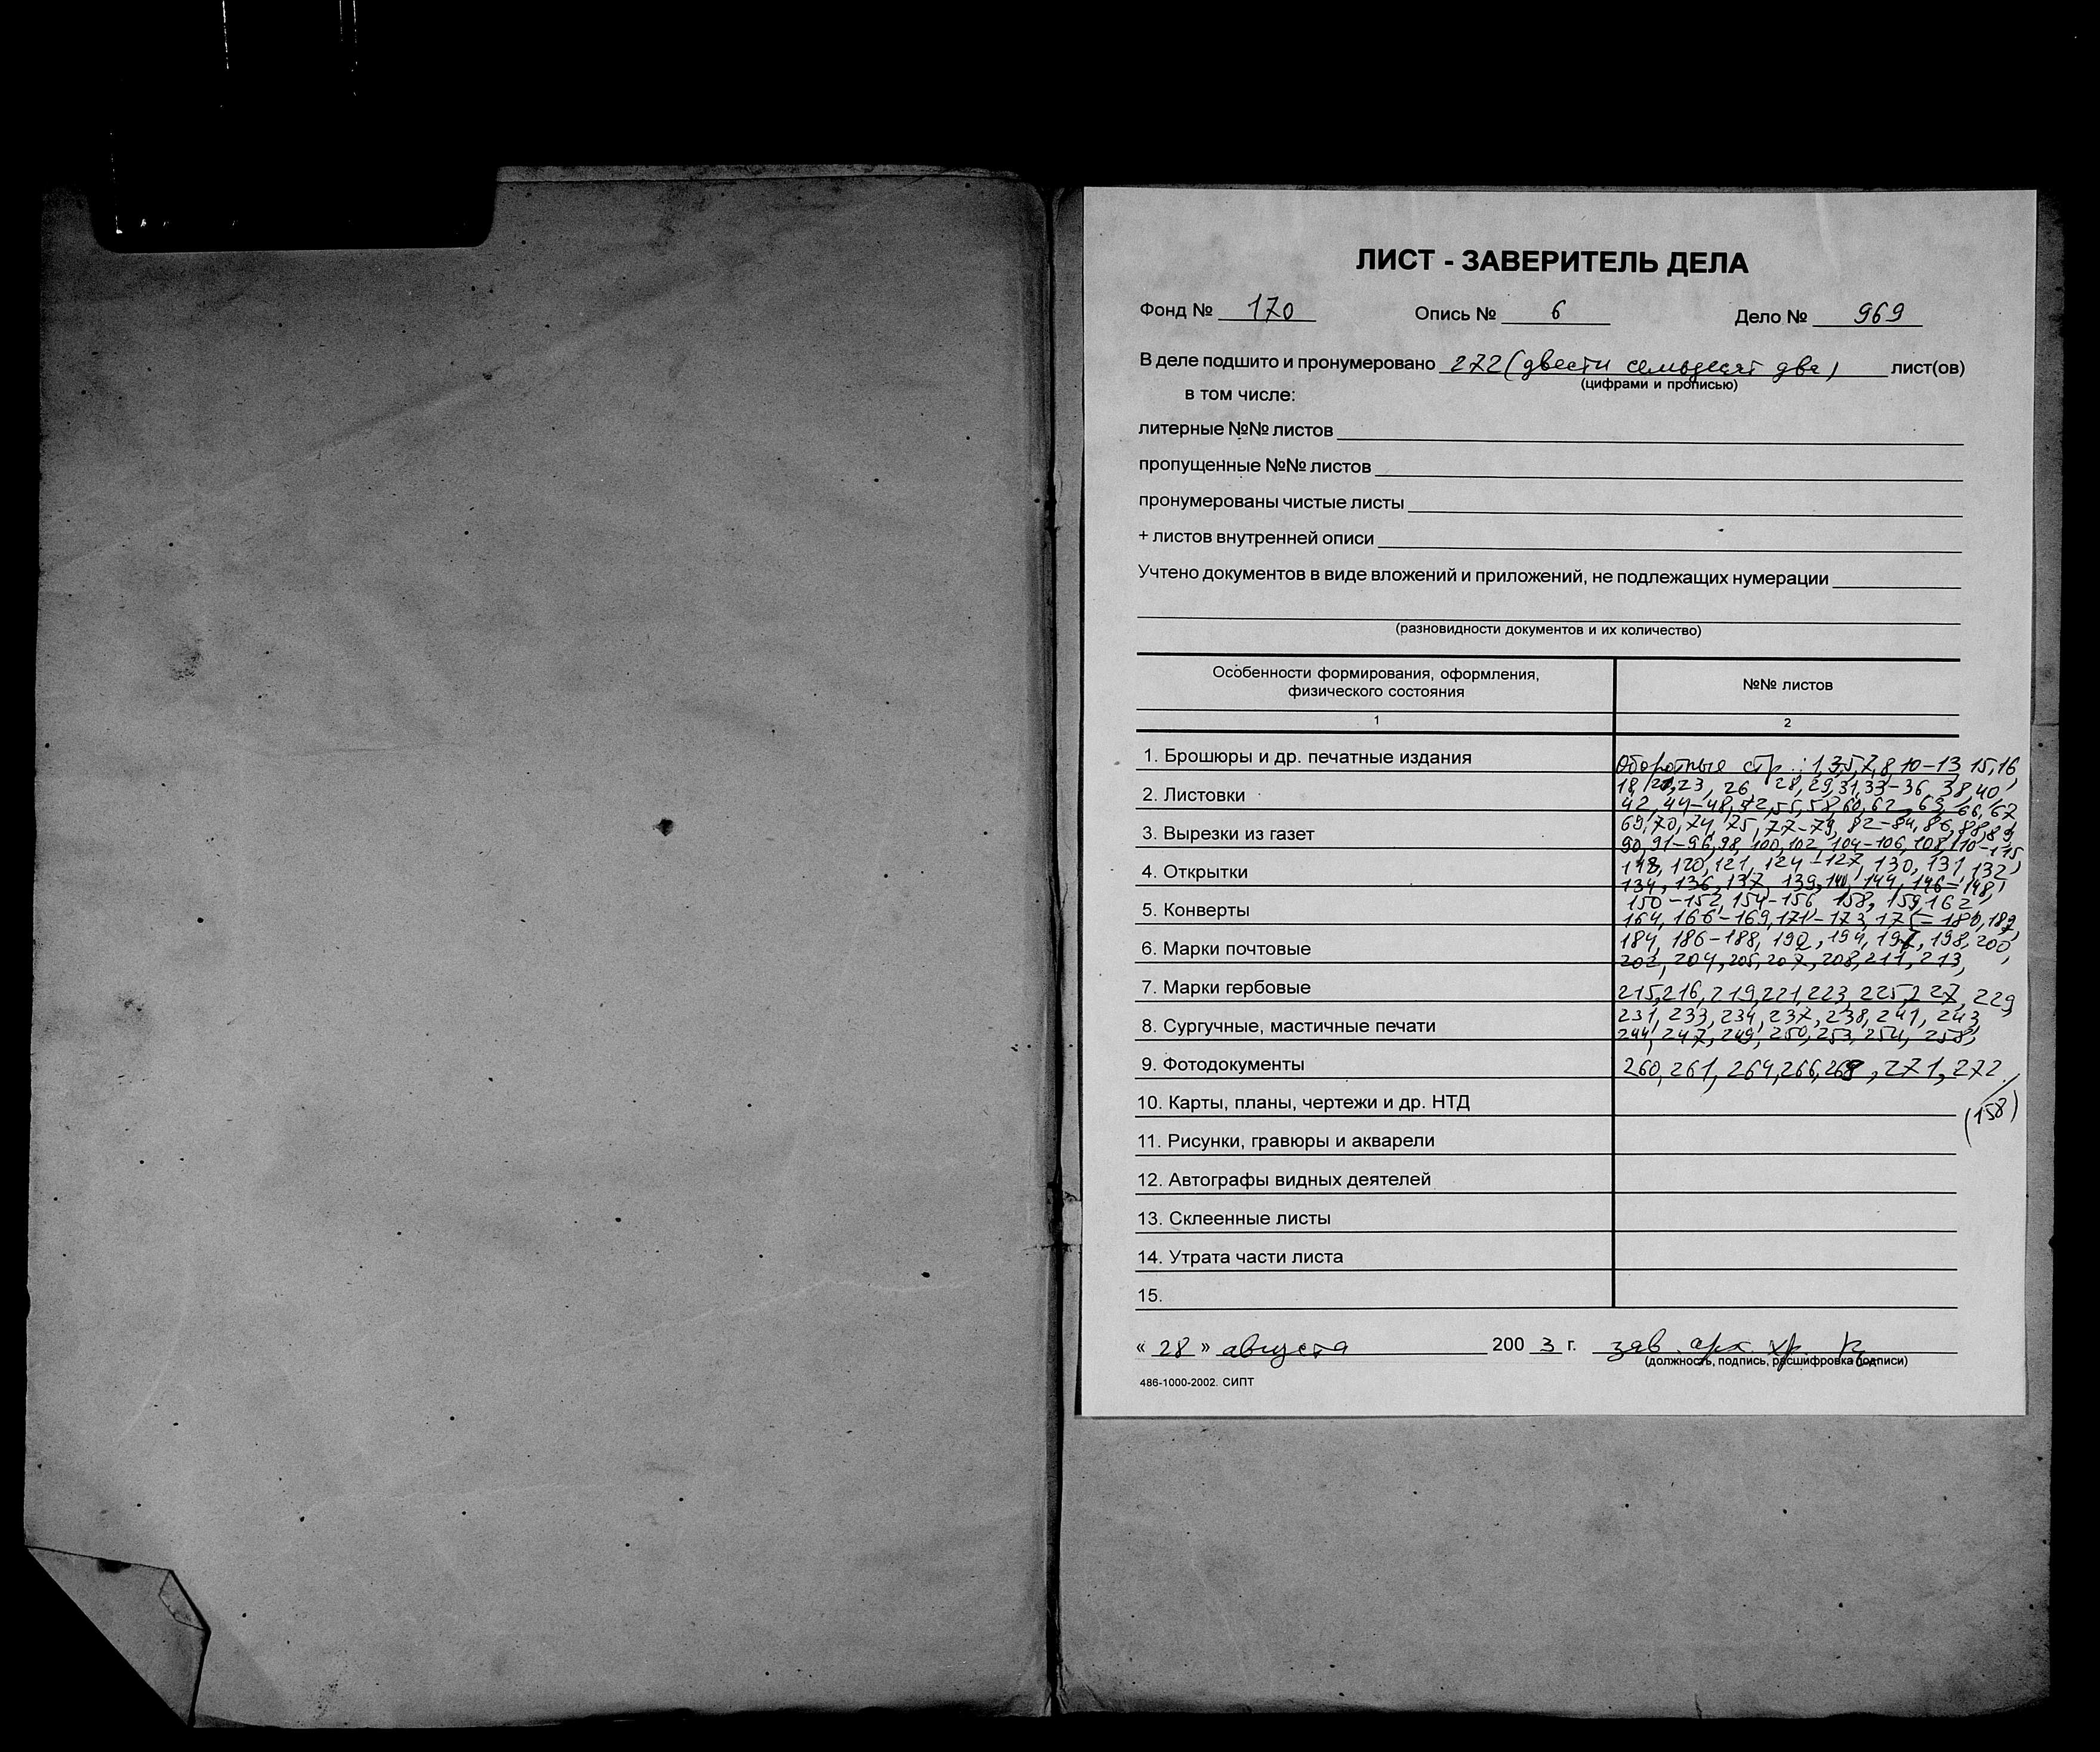 ЛИСТ - ЗАВЕРИТЕЛЬ ДЕЛА
Фонд № 170 Опись № 6 Дело № 969
В деле подшито и пронумеровано 272 (двести семьдесят два) лист(ов)
(цифрами и прописью)
в том числе:
литерные №№ листов
пропущенные №№ листов
пронумерованы чистые листы
+ листов внутренней описи
Учтено документов в виде вложений и приложений, не подлежащих нумерации
(разновидности документов и их количество)
Особенности формирования, оформления,
физического состояния
№№ листов
1
2
1. Брошюры и др. печатные издания
Оборотные стр.: 1,3,5,7,8,10-13 15,16,
18, 23, 26, 28,29,31,33-36, 38,40,
2. Листовки
42,44-48,52,56,58,60,62, 63, 66,67
69,70,74,75,77-79, 82-84,86,88,89
3. Вырезки из газет
90,91-96,98,100,102,104-106,108,110-115
118,120,121,124-127,130,131,132,
4. Открытки
134,136,137,139,140,144,146-148,
150-152,154-156,158,159,162,
5. Конверты
164,166-169,171-173,175-180,182,
184,186-188,190,194,197,198,200,
6. Марки почтовые
202,204,205,207,208,211,213,
7. Марки гербовые
215,216,219,221,223,225,227,229
231,233,234,237,238,241,243,
8. Сургучные, мастичные печати
244,247,249,250,253,254,258,
9. Фотодокументы
260,261,264,266,268,271,272.
10. Карты, планы, чертежи и др. НТД
(158)
11. Рисунки, гравюры и акварели
12. Автографы видных деятелей
13. Склеенные листы
14. Утрата части листа
15.
« 28 » августа 2003 г. зав. арх. хр.
(должность, подпись, расшифровка подписи)
486-1000-2002. СИПТ